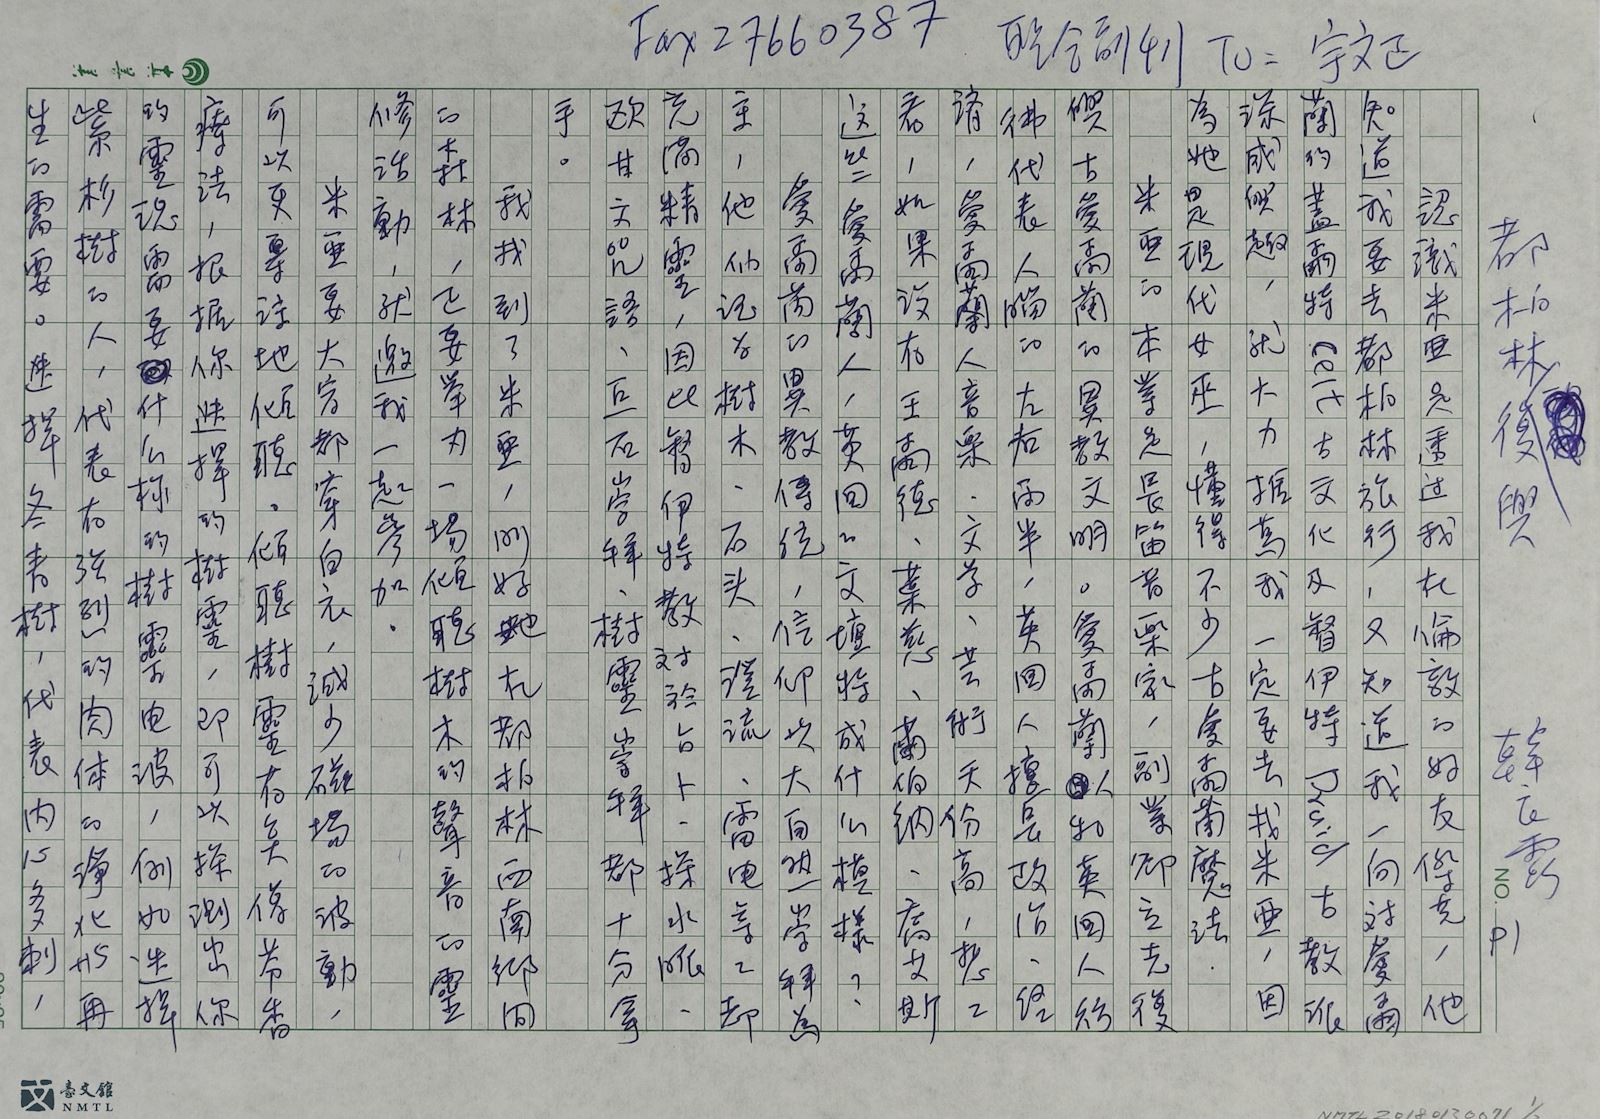 Fax 27660387 聯合副刊 To= 宇文正
都柏林復興
韓良露
NO. P1
認識米亞是透過我在倫敦的好友傑克,他
知道我要去都柏林旅行,又知道我一向對愛爾
蘭的蓋爾特(Celt)古文化及督伊特(Druid)古教派
深感興趣,就大力推薦我一定要去找米亞,因
為她是現代女巫,懂得不少古愛爾蘭魔法.
米亞的本業是長笛音樂家,副業卻立志復
興古愛爾蘭的異教文明。愛爾蘭人和英国人彷
彿代表人腦的左右兩半,英国人擅長政治、經
濟,愛爾蘭人音樂.文学、芸術天份高,想之
看,如果沒有王爾德、葉慈、蕭伯納、喬艾斯
這些愛爾蘭人,英国的文壇将成什么模樣?
愛爾蘭的異教傳統,信仰以大自然崇拜為
主,他们認為樹木、石头、溪流、雷电等之都
充滿精靈,因此督伊特教对於占卜、探水脈、
砍甘文咒語、巨石崇拜、樹靈崇拜都十分拿
手。
我找到了米亞,刚好她在都柏林西南鄉间
的森林,正要举为一場傾聽樹木的聲音的靈
修活動,就邀我一起參加.
米亞要大家都穿白衣,減少磁場的波動,
可以更專注地傾聽。傾聽樹靈有矣像芳香
療法,根據你选擇的樹靈,即可以探測出你
的靈魂需要什么樣的樹靈电波,例如选擇
紫杉樹的人,代表有強烈的肉体的淨化與再
生的需要。选擇冬青樹,代表内心多刺,
臺文館
NMTL
NMTL20180130071 1/2